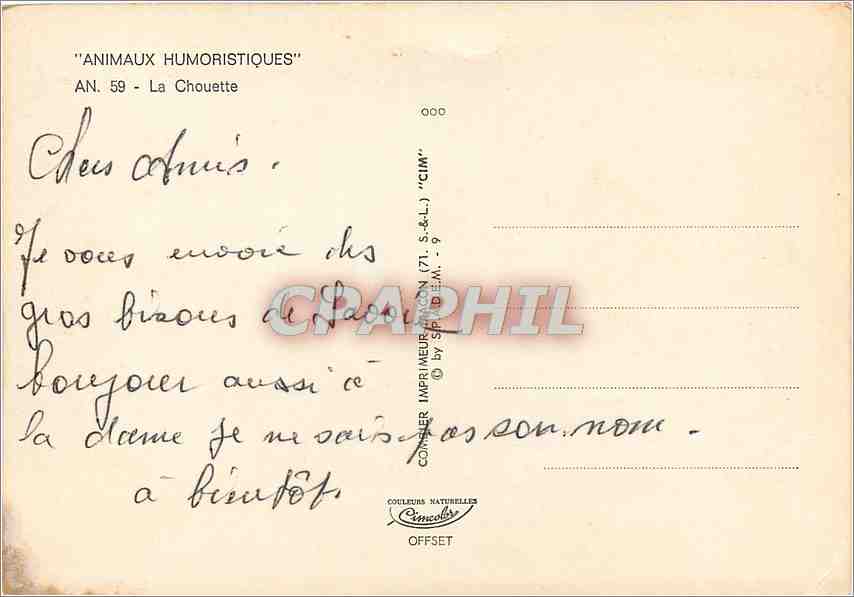 "ANIMAUX HUMORISTIQUES"
AN. 59 - La Chouette
Chers Amis.
Je vous envoie des
gros bisous de Savoie
bonjour aussi à
la dame je ne sais pas son nom.
à bientôt.
COMBIER IMPRIMEUR MACON (71. S.-&-L.) "CIM"
© by S.P.A.D.E.M. - 9
COULEURS NATURELLES
Cimcolor
OFFSET
CPAPHIL